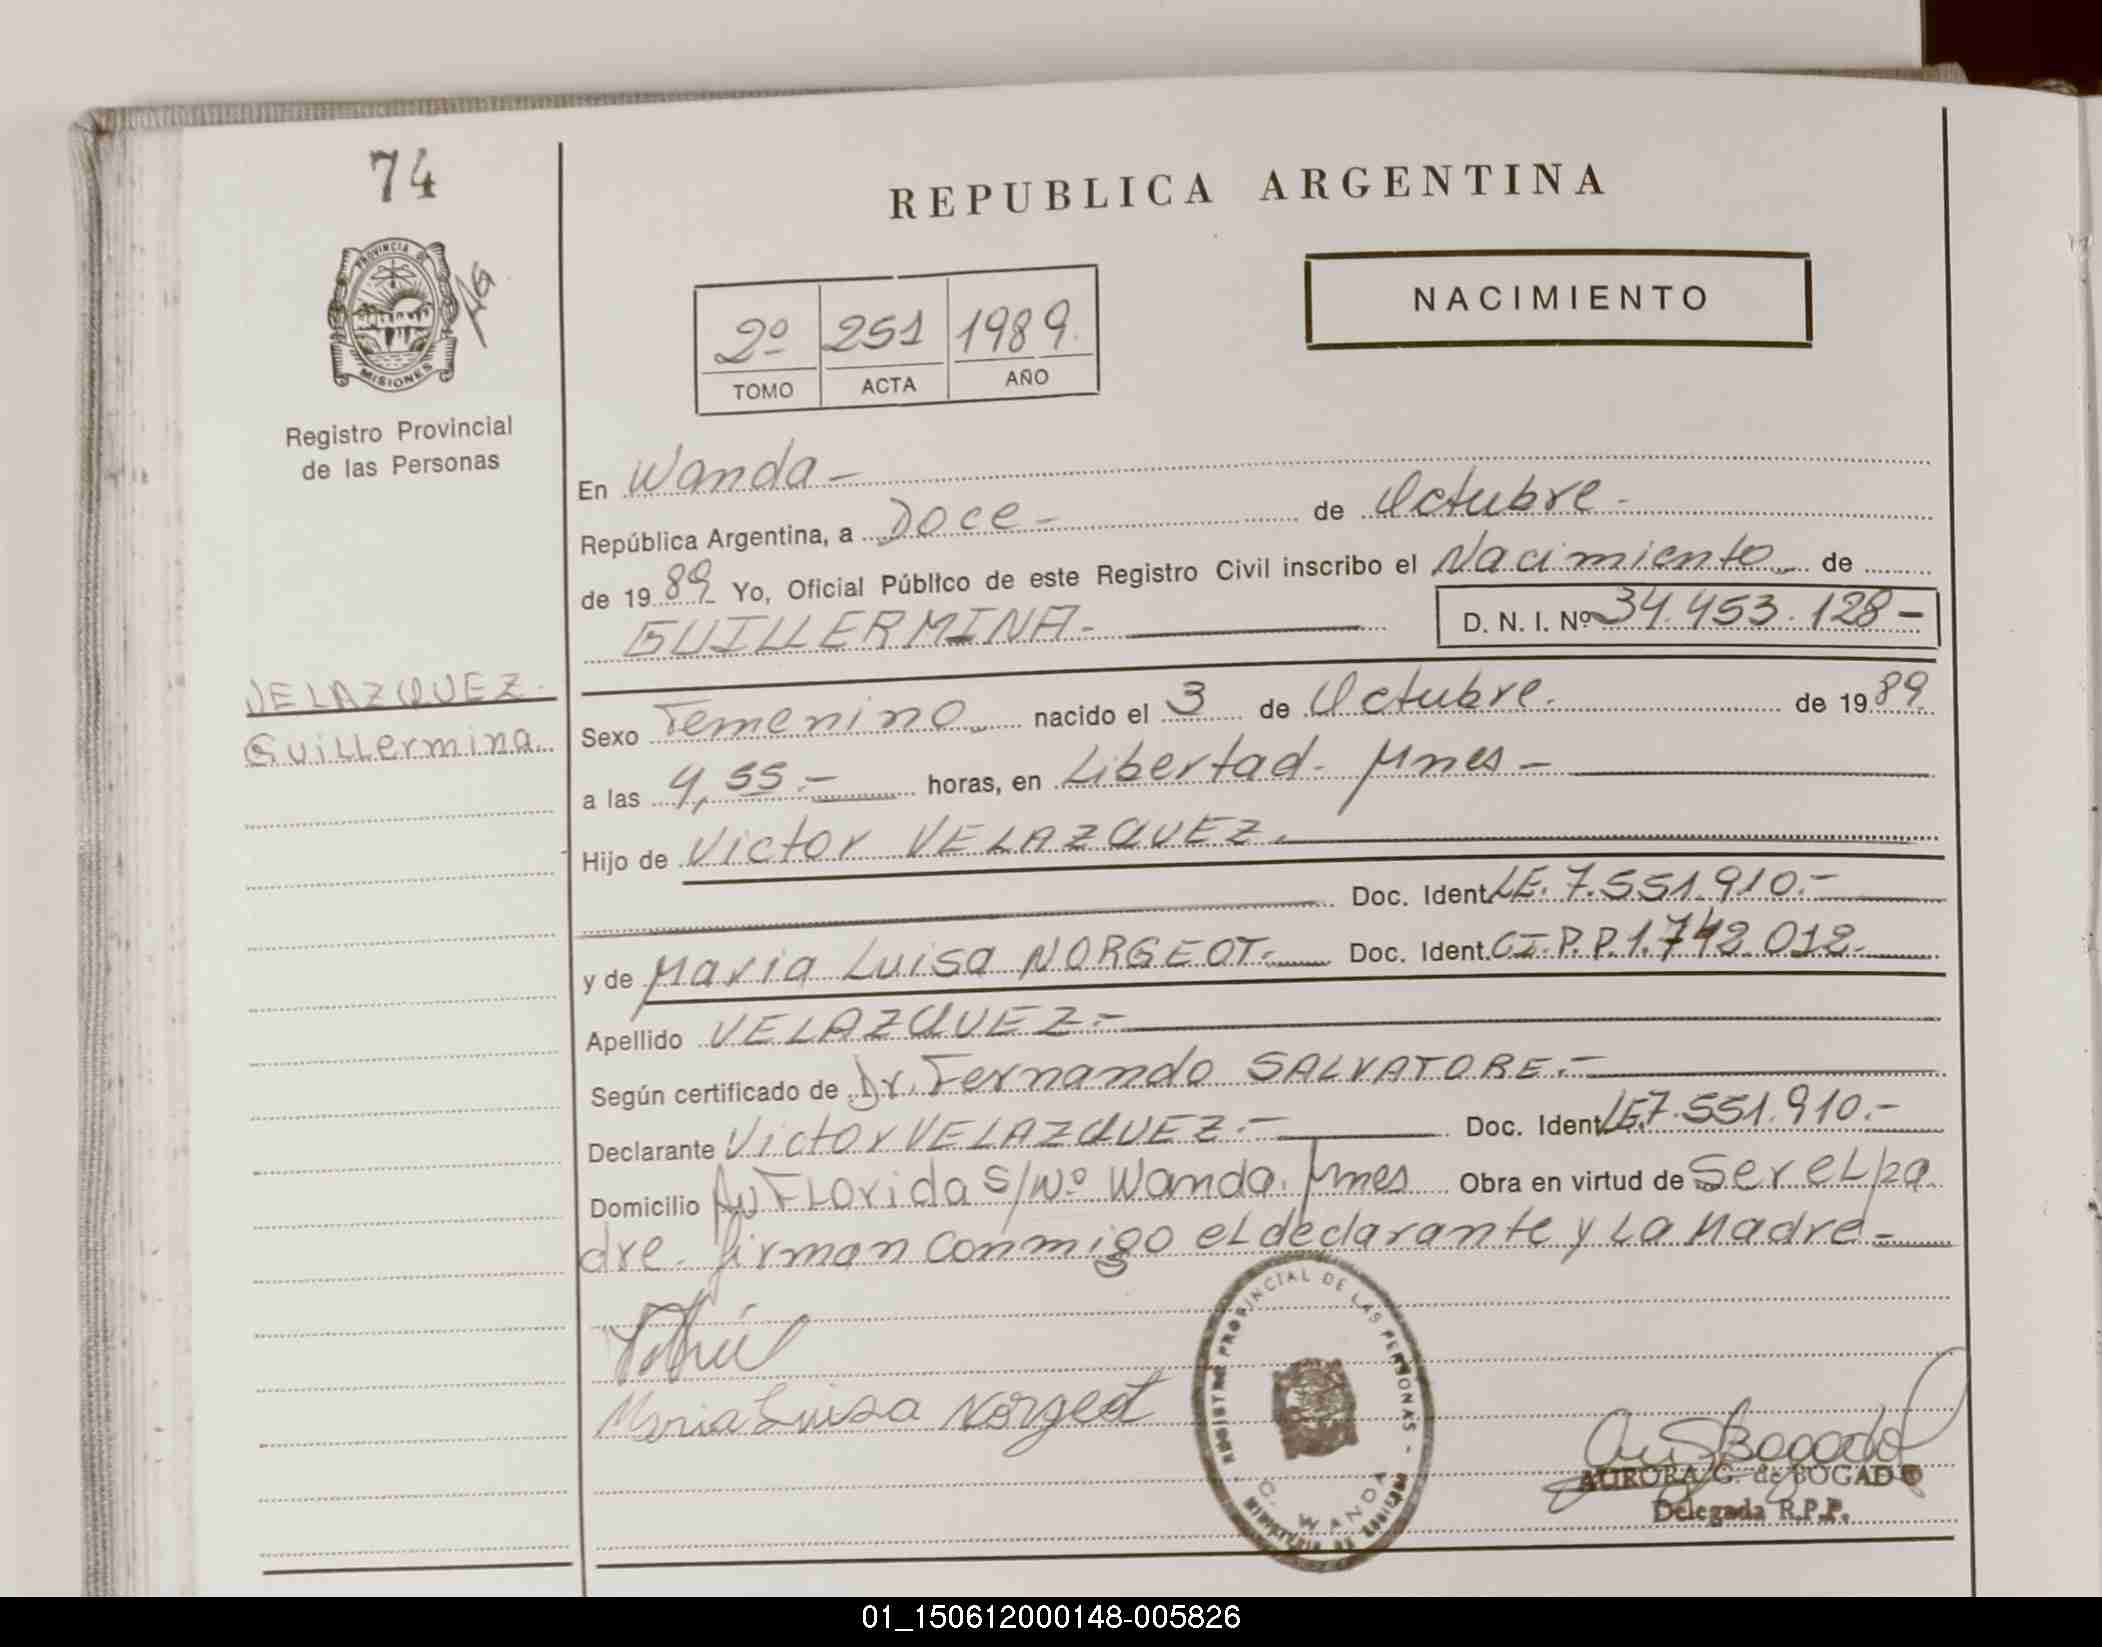 74
REPUBLICA ARGENTINA
PROVINCIA DE
MISIONES
Registro Provincial
de las Personas
2º 251 1989.
TOMO ACTA AÑO
NACIMIENTO
En Wanda -
República Argentina, a Doce - de Octubre -
de 1989 Yo, Oficial Público de este Registro Civil inscribo el Nacimiento de
GUILLERMINA - D. N. I. Nº 34.453.128 -
VELAZQUEZ.
Guillermina.
Sexo Femenino nacido el 3 de Octubre. de 1989.
a las 4,55.- horas, en Libertad - Mnes -
Hijo de Victor VELAZQUEZ.
Doc. Ident. LE. 7.551.910.-
y de Maria Luisa NORGEOT.- Doc. Ident. CI.P.P.1.742.012.-
Apellido VELAZQUEZ.-
Según certificado de Dr. Fernando SALVATORE.-
Declarante Victor VELAZQUEZ.- Doc. Ident. LE.7.551.910.-
Domicilio Av Florida S/Nº Wanda. Mnes Obra en virtud de Ser el pa
dre. firman conmigo el declarante y La Madre -
Maria Luisa Norgeot
REGISTRO PROVINCIAL DE LAS PERSONAS -
WANDA
AURORA G. de BOGADO
Delegada R.P.P.
01_150612000148-005826